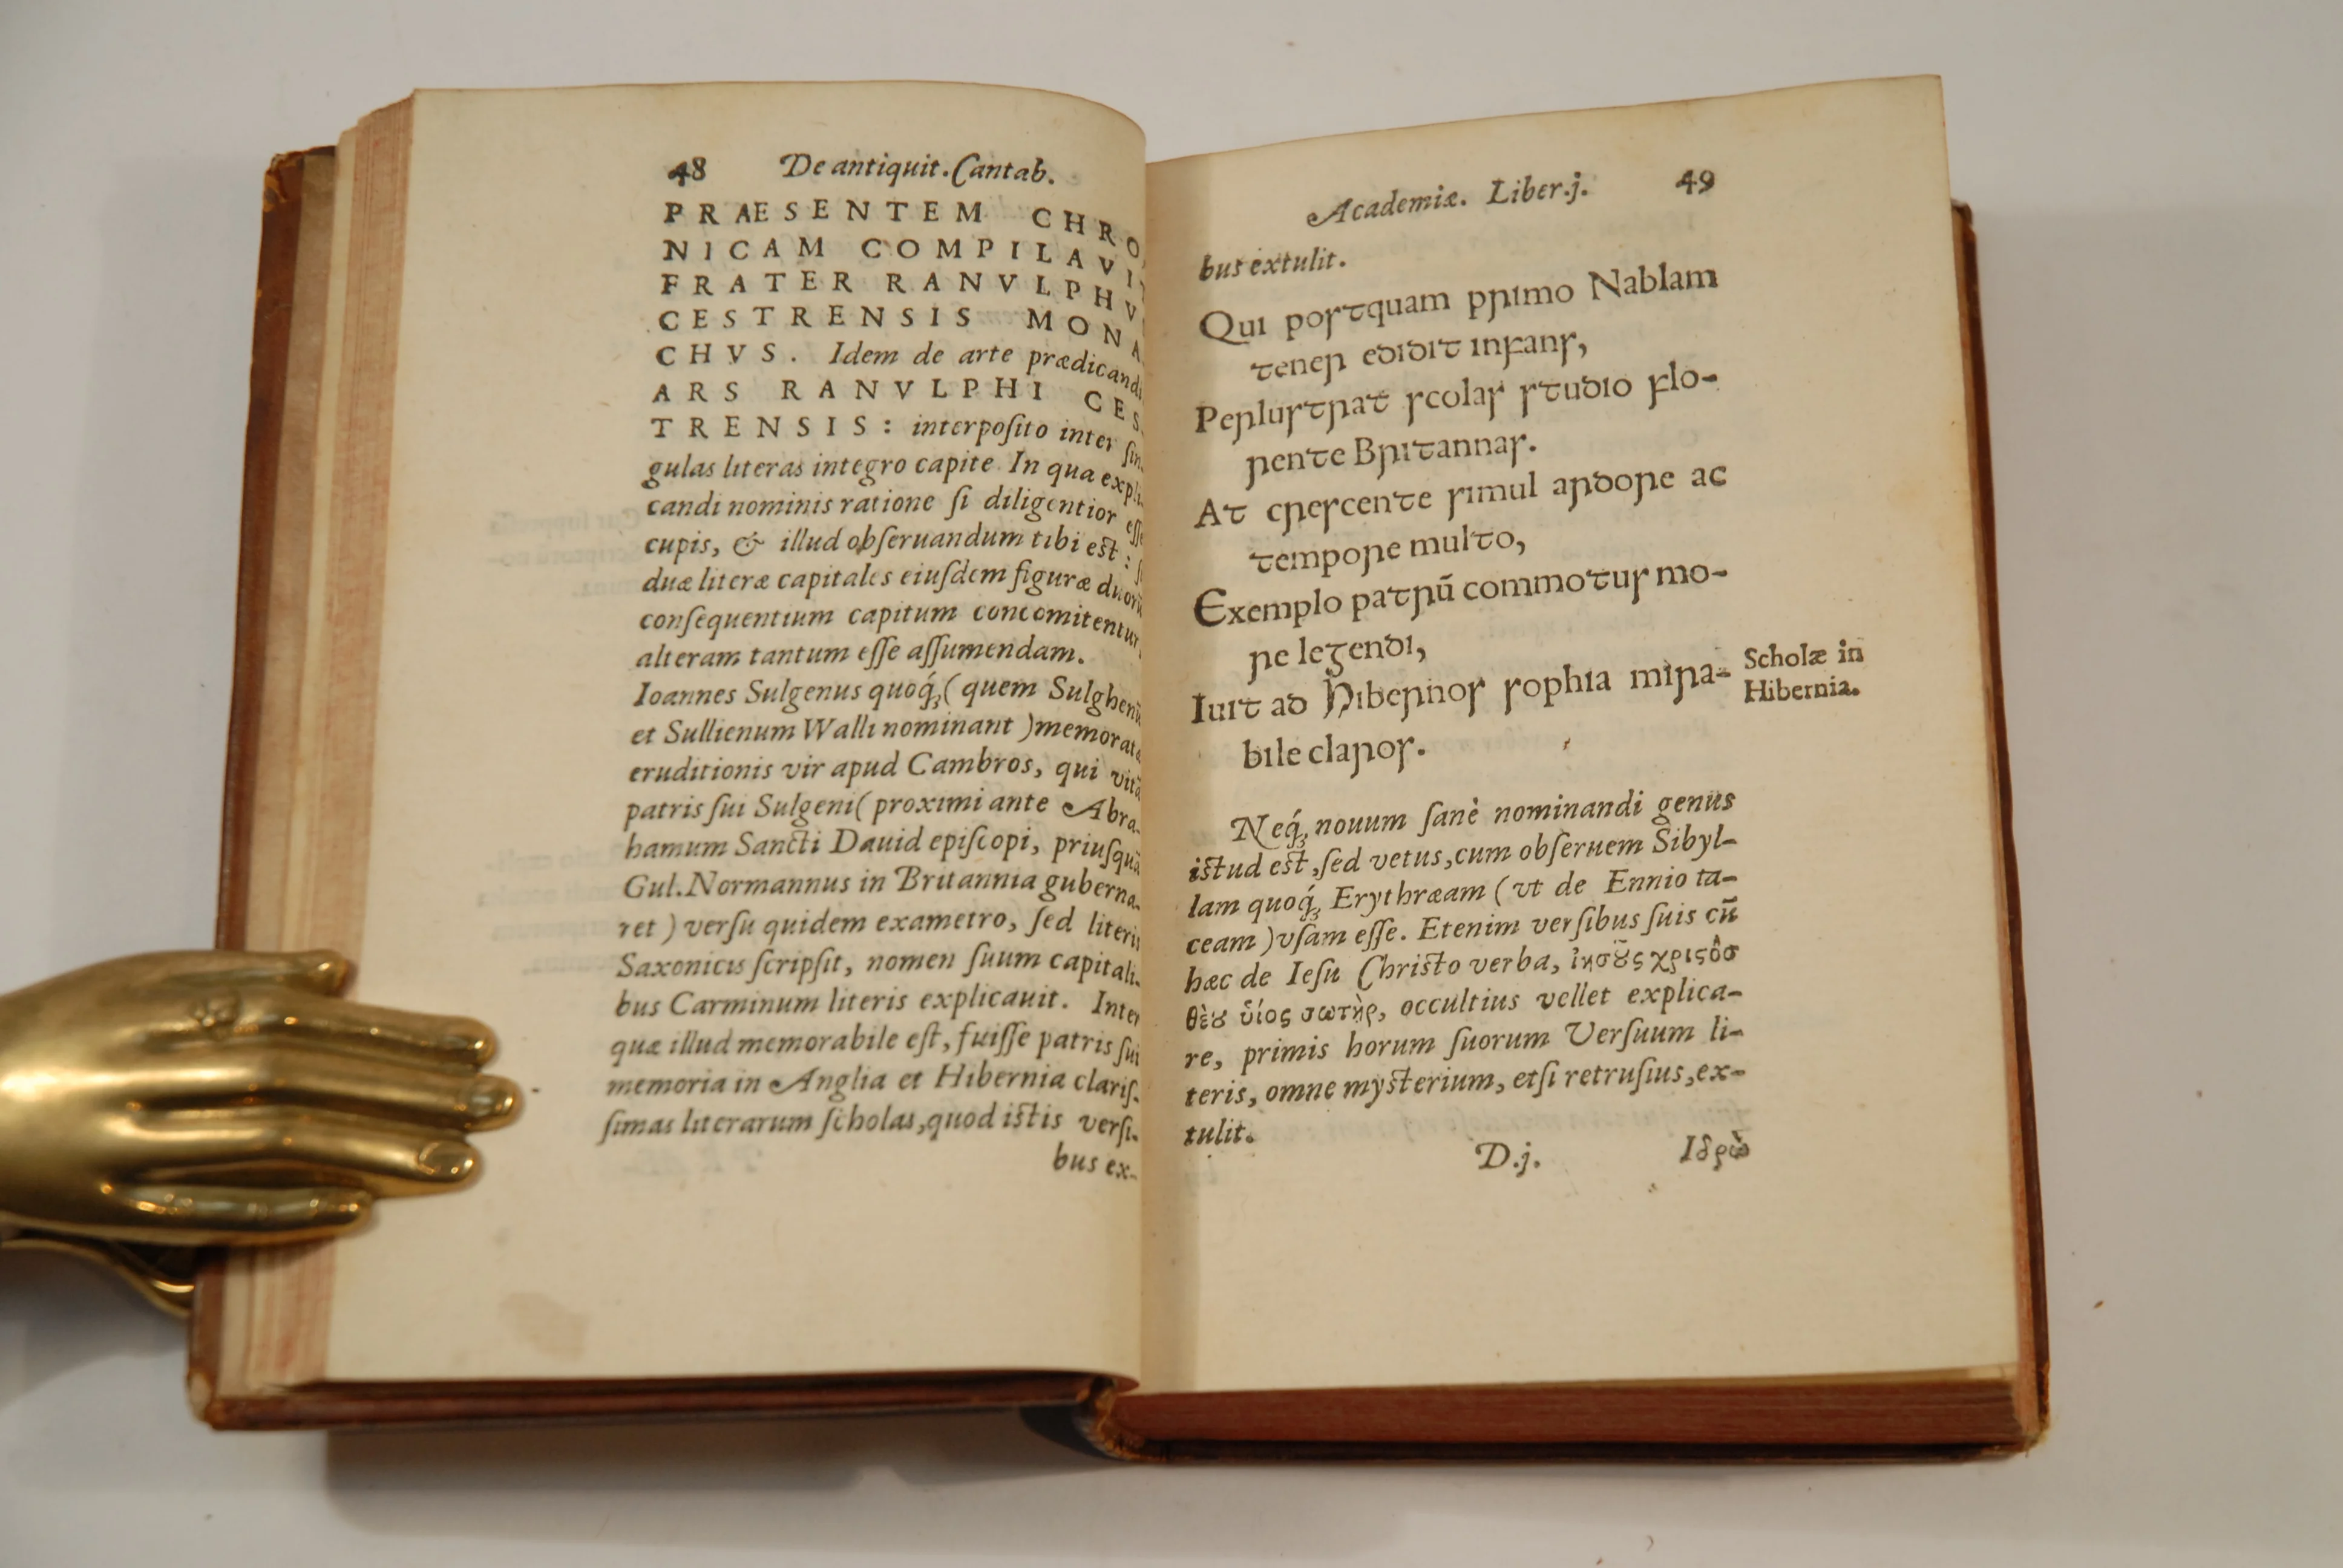 48 De antiquit. Cantab.
PRAESENTEM CHRO
NICAM COMPILAVIT
FRATER RANVLPHV
CESTRENSIS MONA
CHVS. Idem de arte prædicandi
ARS RANVLPHI CES
TRENSIS: interpoſito inter ſin
gulas literas integro capite. In qua expli
candi nominis ratione ſi diligentior eſſe
cupis, & illud obſeruandum tibi est:
duæ literæ capitales eiuſdem figuræ duorū
conſequentium capitum concomitentur,
alteram tantum eſſe aſſumendam.
Ioannes Sulgenus quoq́;(quem Sulghenū
et Sullienum Walli nominant)memoratæ
eruditionis vir apud Cambros, qui vitā
patris ſui Sulgeni(proximi ante Abra-
hamum Sancti Dauid epiſcopi, priuſquā
Gul.Normannus in Britannia guberna-
ret) verſu quidem exametro, ſed literis
Saxonicis ſcripſit, nomen ſuum capitali-
bus Carminum literis explicauit. Inter
quæ illud memorabile eſt, fuiſſe patris ſui
memoria in Anglia et Hibernia clariſ-
ſimas literarum ſcholas,quod istis verſi-
bus ex-
Academiæ. Liber.j. 49
bus extulit.
Qui poꞅꞇquam pꞃimo Nablam
ꞇeneꞃ eꝺıꝺıꞇ ınꝼanꞅ,
Peꞃluꞅꞇꞃaꞇ ꞅcolaꞅ ꞅꞇuꝺıo ꝼlo-
ꞃenꞇe Bꞃıꞇannaꞅ.
Aꞇ cꞃeꞅcenꞇe ꞅımul aꞃꝺoꞃe ac
ꞇempoꞃe mulꞇo,
Exemplo paꞇꞃū commoꞇuꞅ mo-
ꞃe leᵹenꝺı,
Iuıꞇ aꝺ Hıbeꞃnoꞅ ꞅophıa mıꞃa-
bıle claꞃoꞅ.
Scholæ in
Hibernia.
Neq́; nouum ſanè nominandi genus
istud est,ſed vetus,cum obſeruem Sibyl-
lam quoq́; Erythræam (vt de Ennio ta-
ceam)vſam eſſe. Etenim verſibus ſuis cū
hæc de Ieſu Christo verba, ἰησȣ͂ς χριϛὸσ
θὲȣ ὕίος σωτὴρ, occultius vellet explica-
re, primis horum ſuorum Verſuum li-
teris, omne mysterium, etſi retruſius,ex-
tulit.
D.j. Ιδρὼ